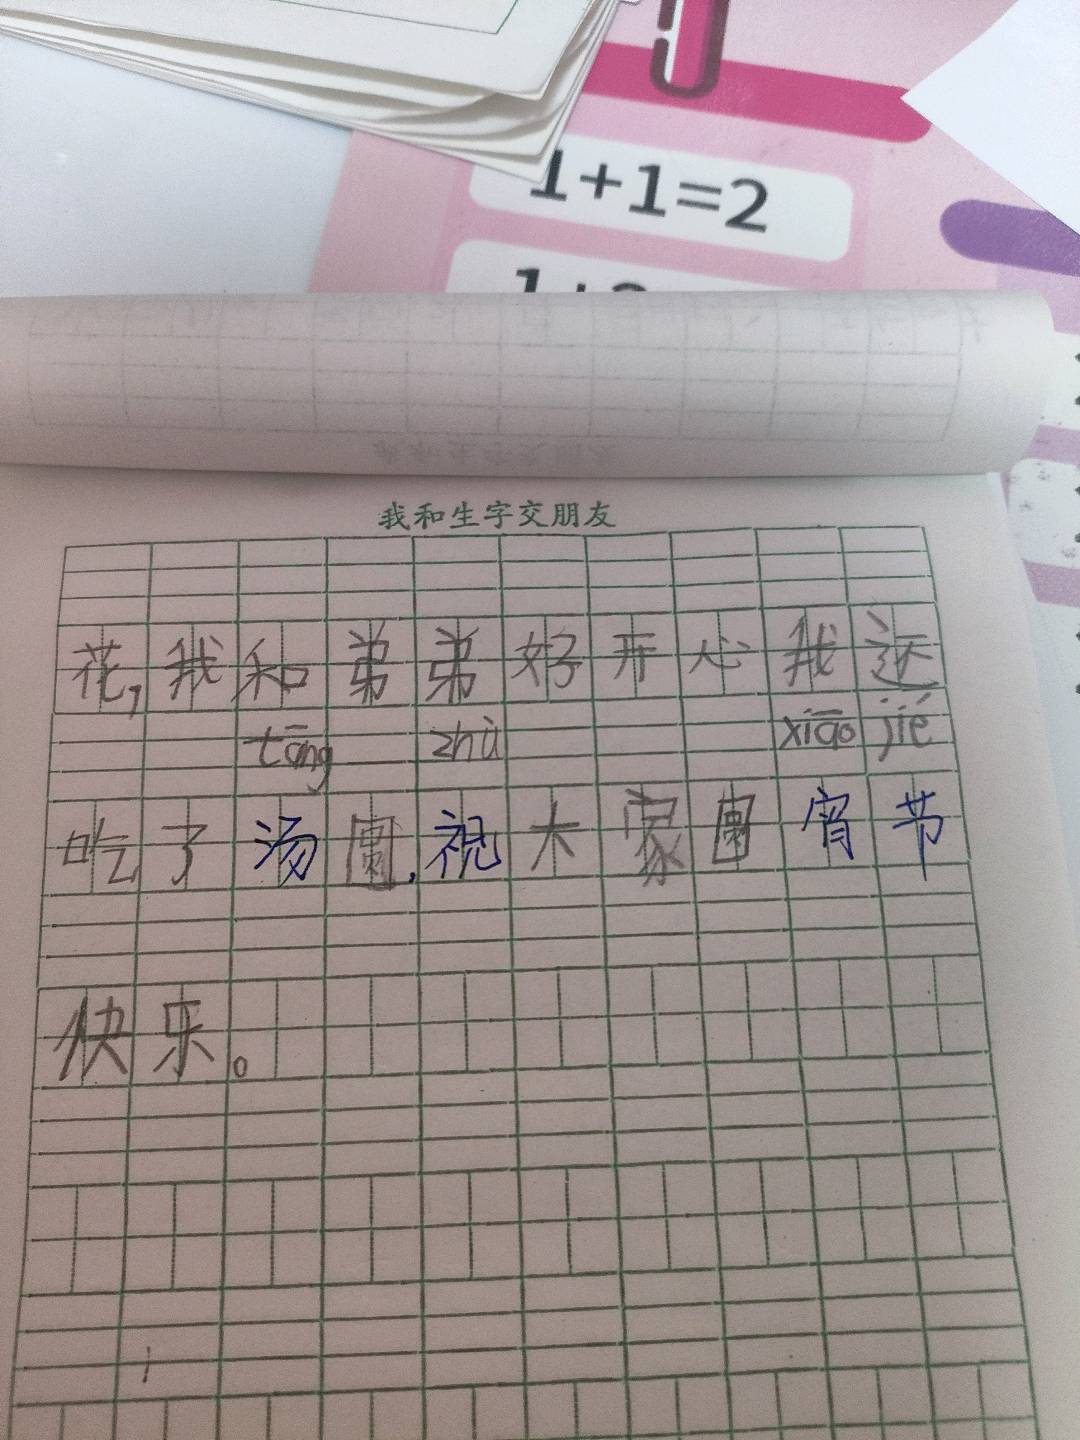 1+1=2
我和生字交朋友
花,我和弟弟好开心我还
tāng zhù xiāo jié
吃了汤圆,祝大家圆宵节
快乐。